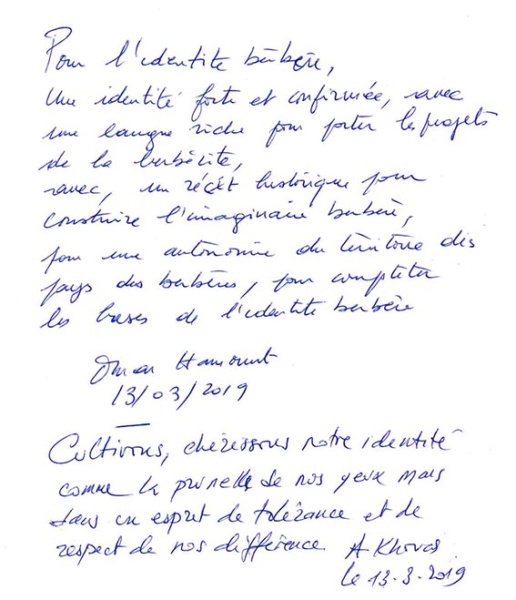 Pour l'identite berbère,
Une identité forte et confirmée, avec
une langue riche pour porter les projets
de la berbérité,
avec, un récit historique pour
construire l'imaginaire berbère,
pour une autonomie du térritoire des
pays des berbères, pour completer
les bases de l'identite berbère
Omar Hamourit
13/03/2019
Cultivons, chérissons notre identité
comme la prunelle de nos yeux mais
dans un esprit de tolérance et de
respect de nos différence A Khovas
le 13.3.2019